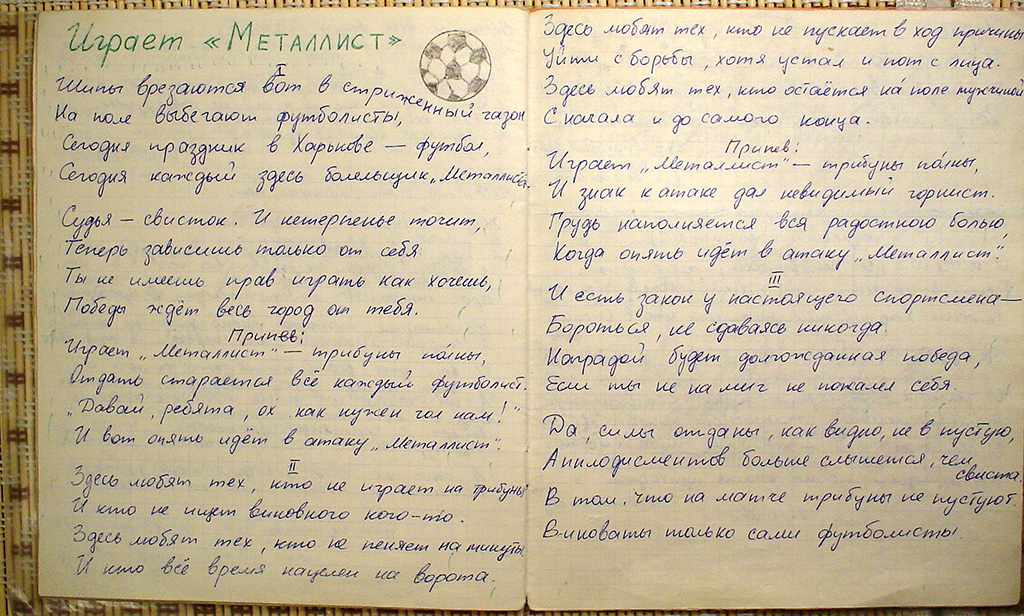 Играет «Металлист»
I
Шипы врезаются вот в стриженный газон
На поле выбегают футболисты,
Сегодня праздник в Харькове — футбол,
Сегодня каждый здесь болельщик „Металлиста.
Судья – свисток. И нетерпенье точит,
Теперь зависишь только от себя.
Ты не имеешь прав играть как хочешь,
Победы ждёт весь город от тебя.
Припев:
Играет „Металлист" — трибуны по́лны,
Отдать старается всё каждый футболист.
„Давай, ребята, ох как нужен гол нам!"
И вот опять идёт в атаку „Металлист".
II
Здесь любят тех, кто не играет на трибуны
И кто не ищет виновного кого-то.
Здесь любят тех, кто не пеняет на минуты
И кто всё время нацелен на ворота.
Здесь любят тех, кто не пускает в ход причины
Уйти с борьбы, хотя устал и пот с лица.
Здесь любят тех, кто остаётся на́ поле мужчиной
С начала и до самого конца.
Припев:
Играет „Металлист" – трибуны по́лны,
И знак к атаке дал невидимый горнист.
Грудь наполняется вся радостною болью,
Когда опять идёт в атаку „Металлист".
III
И есть закон у настоящего спортсмена —
Бороться, не сдаваясь никогда.
Наградой будет долгожданная победа,
Если ты не на миг не пожалел себя.
Да, силы отданы, как видно, не в пустую,
Апплодисментов больше слышется, чем
свиста.
В том, что на матче трибуны не пустуют
Виноваты только сами футболисты.